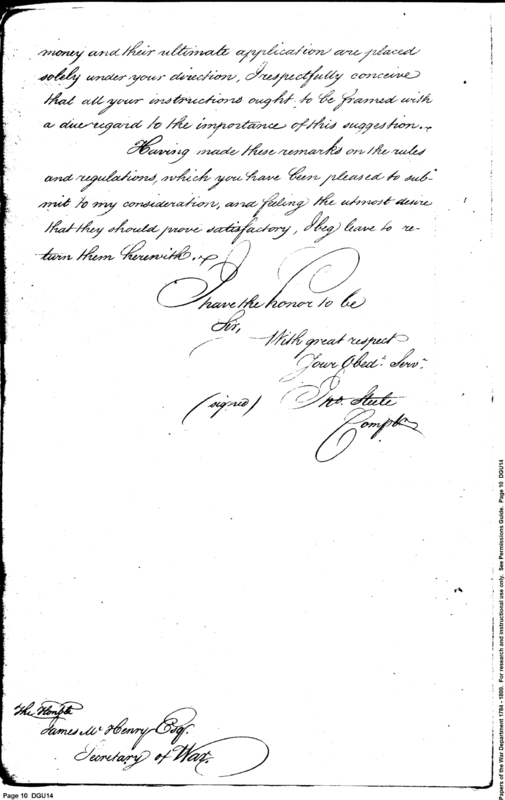 money and their ultimate application are placed
solely under your direction, I respectfully conceive
that all your instructions ought to be framed with
a due regard to the importance of this suggestion.
Having made these remarks on the rules
and regulations, which you have been pleased to sub-
mit to my consideration, and feeling the utmost desire
that they should prove satisfactory, I beg leave to re-
turn them herewith.
I have the honor to be
Sir,
With great respect
Your Obedt. Servt.
(signed) Jno. Steele
Comptr
The Honble
James McHenry Esqr.
Secretary of War.
Page 10 DGU14
Papers of the War Department 1784 - 1800. For research and instructional use only. See Permissions Guide. Page 10 DGU14